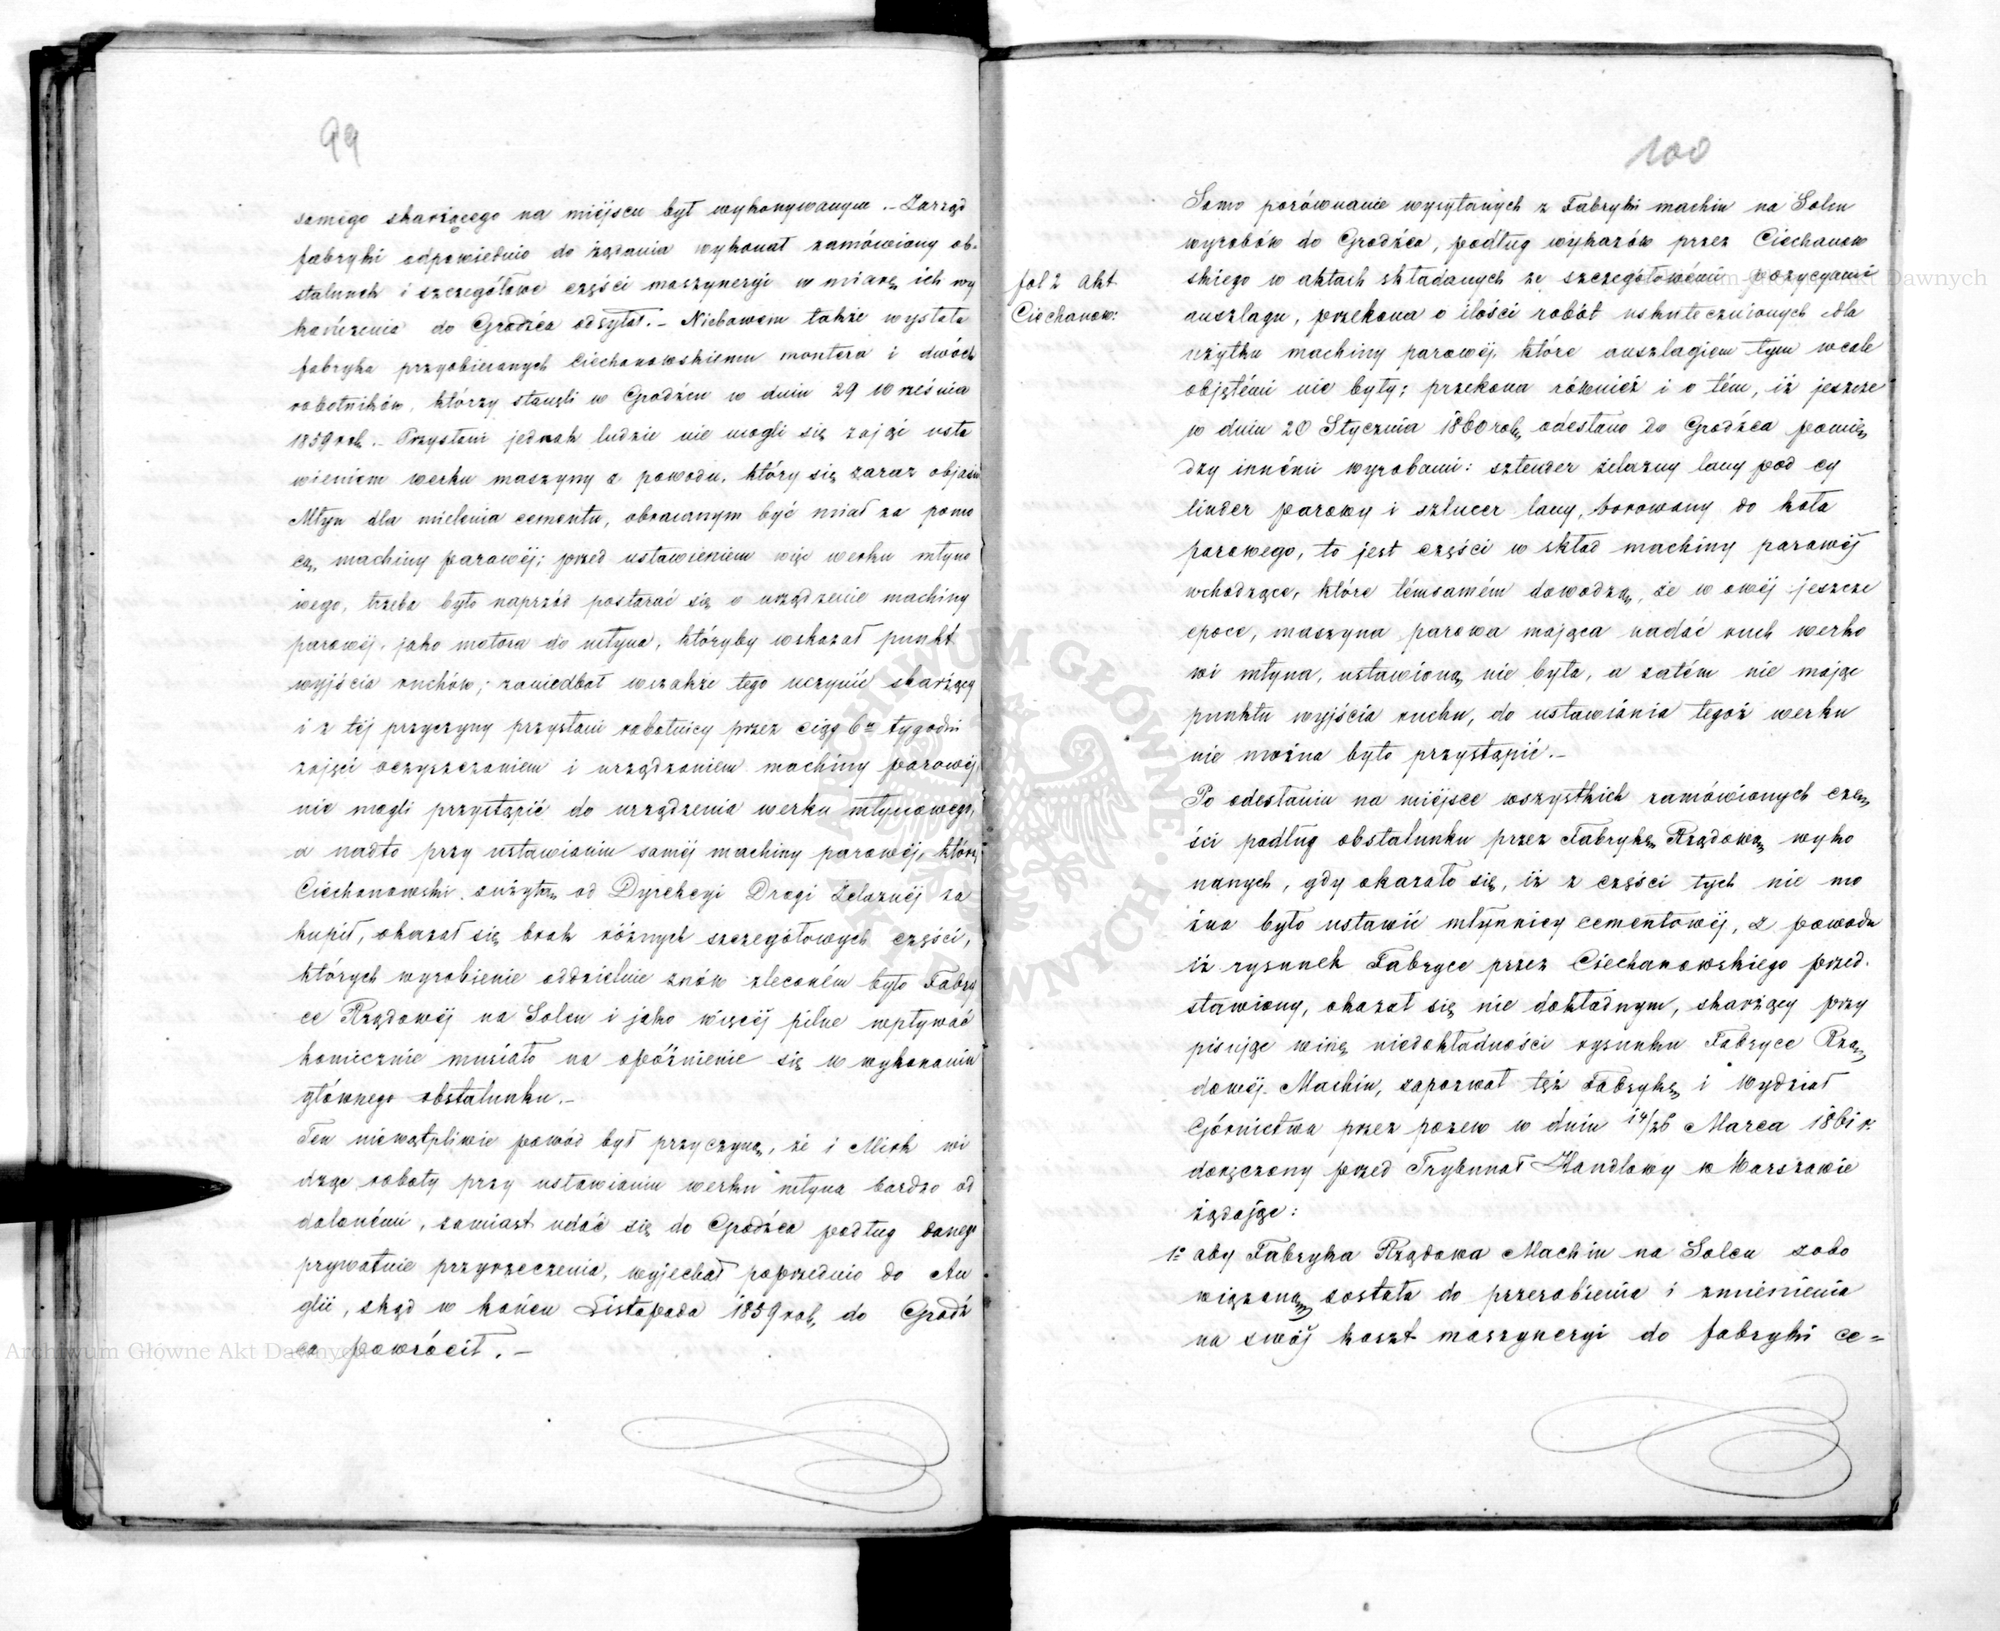 99
samego skarżącego na miejscu był wykonywanym. – Zarząd
fabryki odpowiednio do żądania wykonał zamówiony ob-
stalunek i szczegółowe części maszyneryi w miarę ich wy
kończenia do Grodźca odsyłał. – Niebawem także wysłała
fabryka przyobiecanych Ciechanowskiemu montera i dwóch
robotników, którzy stanęli w Grodźcu w dniu 29 Września
1859 rok. – Przysłani jednak ludzie nie mogli się zająć usta
wieniem werku maszyny z powodu, który się zaraz objaśni
Młyn dla mielenia cementu, obracanym być miał za pomo
cą machiny parowéj; przed ustawieniem więc werku młyno
wego, trzeba było naprzód postarać się o urządzenie machiny
parowéj, jako motora do młyna, któryby wskazał punkt
wyjścia ruchów; zaniedbał wszakże tego uczynić skarżący
i z téj przyczyny przysłani robotnicy przez ciąg 6ciu tygodni
zajęci oczyszczaniem i urządzaniem machiny parowéj,
nie mogli przystąpić do urządzenia werku młynowego,
a nadto przy ustawianiu saméj machiny parowéj, którą
Ciechanowski zużytą od Dyrekcyi Drogi Żelaznéj za
kupił, okazał się brak różnych szczegółowych części,
których wyrobienie oddzielnie znów zleconém było Fabry
ce Rządowéj na Solcu i jako więcéj pilne wpływać
koniecznie musiało na opóźnienie się w wykonaniu
głównego obstalunku. –
Ten niewątpliwie powód był przyczyną, że i Mirk wi
dząc roboty przy ustawianiu werku młyna bardzo od
dalonémi, zamiast udać się do Grodźca podług danego
prywatnie przyrzeczenia, wyjechał poprzednio do An
glii, skąd w końcu Listopada 1859 rok, do Grodź
ca powrócił. –
100
fol 2 akt
Ciechanow:
Samo porównanie wysyłanych z Fabryki machin na Solcu
wyrobów do Grodźca, podług wykazów przez Ciechanow
skiego w aktach składanych ze szczegółowémi pozycyami
auszlagu, przekona o ilości robót uskutecznionych dla
użytku machiny parowéj, które auszlagiem tym wcale
objętémi nie były; przekona również i o tém, iż jeszcze
w dniu 20 Stycznia 1860 rok, odesłano do Grodźca pomię
dzy innémi wyrobami: sztender żelazny lany pod cy
linder parowy i szlucer lany, borowany do koła
parowego, to jest części w skład machiny parowéj
wchodzące, które témsamém dowodzą, że w owéj jeszcze
epoce, maszyna parowa mająca nadać ruch werko
wi młyna, ustawioną nie była, a zatém nie mając
punktu wyjścia ruchu, do ustawiania tegoż werku
nie można było przystąpić. –
Po odesłaniu na miejsce wszystkich zamówionych czę
ści podług obstalunku przez Fabrykę Rządową wyko
nanych, gdy okazało się, iż z części tych nie mo
żna było ustawić młynnicy cementowéj, z powodu
iż rysunek Fabryce przez Ciechanowskiego przed.
stawiony, okazał się nie dokładnym, skarżący przy
pisując winę niedokładności rysunku Fabryce Rzą
dowéj Machin, zapozwał też Fabrykę i Wydział
Górnictwa przez pozew w dniu 14/26 Marca 1861 r.
doręczony przed Trybunał Handlowy w Warszawie
żądając:
1o aby Fabryka Rządowa Machin na Solcu zobo
wiązaną została do przerobienia i zmienienia
na swój koszt maszyneryi do fabryki ce=
Archiwum Główne Akt Dawnych
Archiwum Główne Akt Dawnych
ARCHIWUM GŁÓWNE AKT DAWNYCH